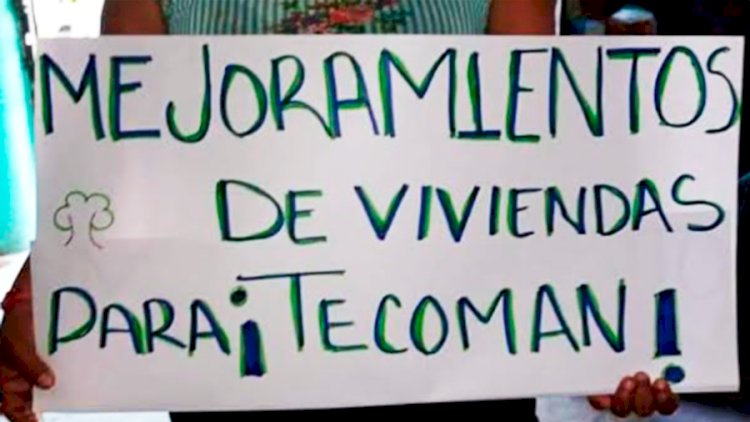 MEJORAMIENTOS
DE VIVIENDAS
PARA ¡TECOMAN!